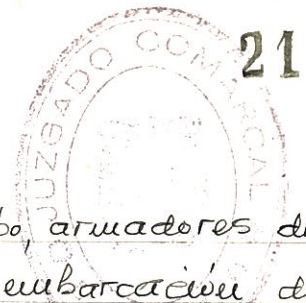 21
JUZGADO COMARCAL
bo, armadores de
embarcación d